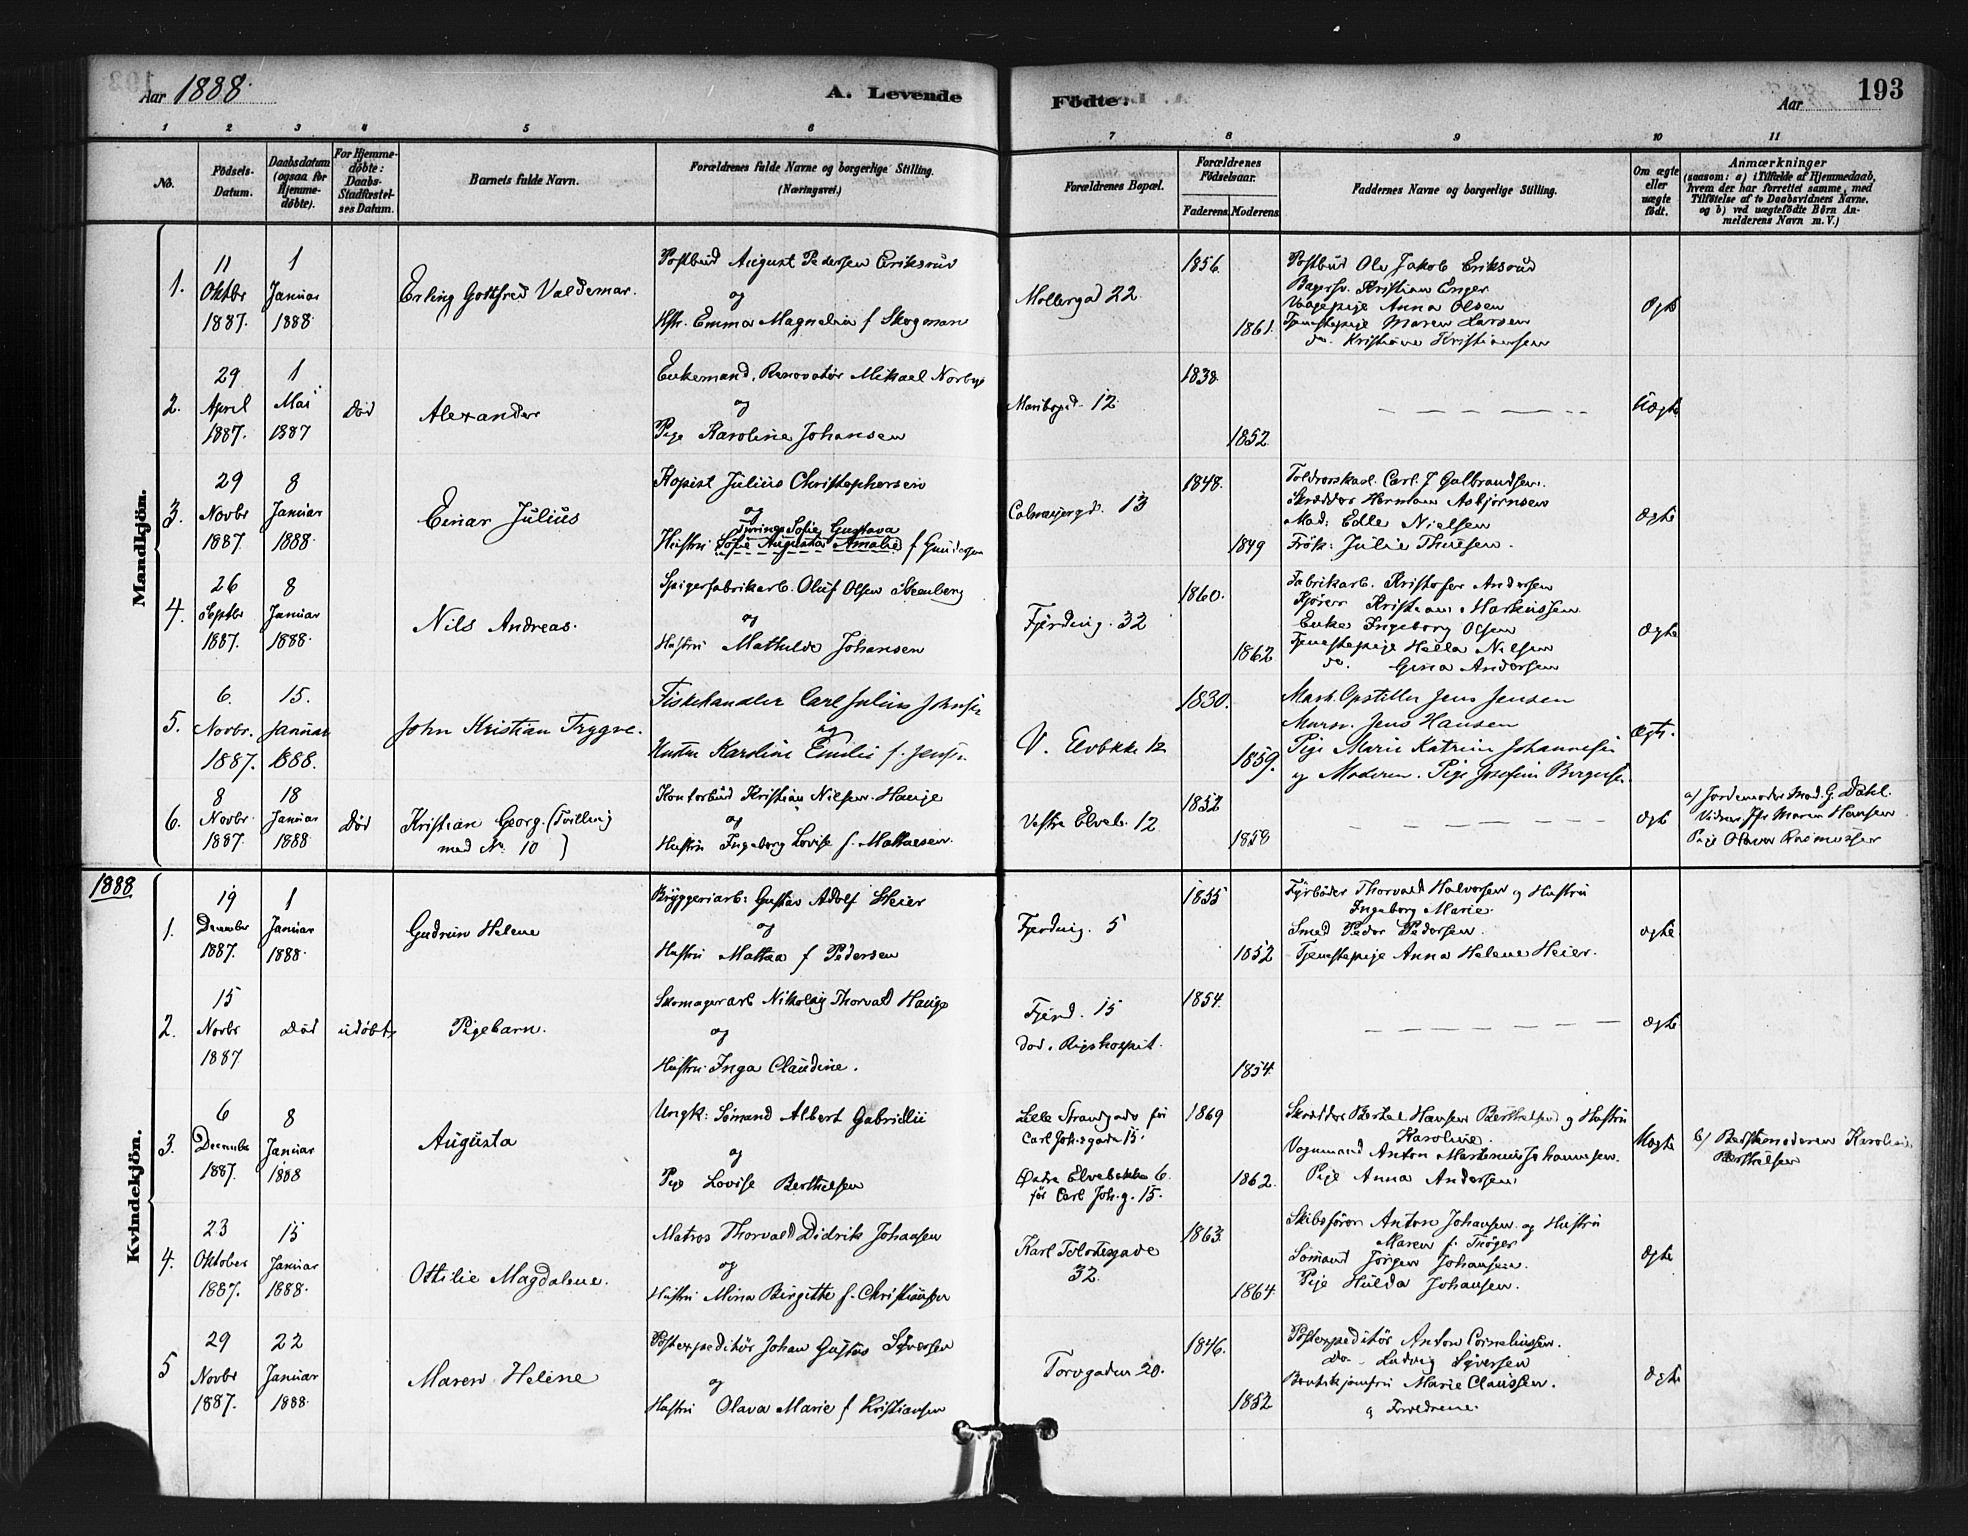 Aar 1888.
A. Levende
Födte.
Aar
193
1 2 3 4 5 6 7 8 9 10 11
No.
Födsels-
Datum.
Daabsdatum
(ogsaa for
Hjemme-
döbte).
For Hjemme-
döbte:
Daabs-
Stadfæstel-
ses Datum.
Barnets fulde Navn.
Forældrenes fulde Navne og borgerlige Stilling.
(Næringsvei.)
Forældrenes Bopæl.
Forældrenes
Födselsaar.
Faderens. Moderens.
Faddernes Navne og borgerlige Stilling.
Om ægte
eller
uægte
födt.
Anmærkninger
(saasom: a) i Tilfælde af Hjemmedaab,
hvem der har forrettet samme, med
Tilföielse af to Daabsvidners Navne.
og b) ved uægtefödte Börn An-
melderens Navn m. V.)
Mandkjön.
1.
11 Oktbr 1887.
1 Januar 1888
Erling Gottfred Valdemar.
Postbud August Pedersen Eriksrud
og
Hstr. Emma Magnelia f Skogman
Mollergad 22
1856.
1861.
Postbud Ole Jakob Eriksrud
Bagersv. Kristian Enger
Vaagepige Anna Olsen
Tjenestepige Maren Larsen
do. Kristiane Kristiansen
Ægte
2.
29 April 1887.
1 Mai 1887
Död
Alexander
Enkemand, Renovatör Mikael Norbye
og
Pige Karoline Johansen
Maribogd. 12
1838
1852.
Uægte
3.
29 Novbr 1887
8 Januar 1888.
Einar Julius
Kopist Julius Christophersen
og
Sofie Gustava
Hustru Sofie Augusta Amalie f Gundersen
Calmeyergd. 13
1848.
1849
Carl J Gulbrandsen.
Skrædder Herman Asbjørnsen
Mad: Edle Nielsen
Frök: Julie Thuesen.
Ægte
4.
26 Septbr 1887.
8 Januar 1888.
Nils Andreas.
Spigerfabrikarb. Oluf Olsen Steenberg
og
Hustru Mathilde Johansen
Fjerding. 32
1860.
1862
Fabrikarb. Kristofer Andersen
Kjörer Kristian Markussen
Enke Ingeborg Olsen
Tjenestepige Helle Nilsen
do. Gina Andersen
Ægte
5.
6. Novbr. 1887.
15. Januar 1888.
John Kristian Trygve.
Fiskehandler Carl Julius Johnsen
og
Hustru Karoline Emilie f. Jensen
V. Elvbkke 12
1830.
1859.
Mask. Opstiller Jens Jensen
Murm. Jens Hansen
Pige Marie Katrine Johannesen
og Moderen. Pige Josefine Borgersen
Ægte.
6.
8 Novbr 1887
18 Januar 1888
Död
Kristian Georg. (Tvilling
med No 10)
Kontorbud Kristian Nilsen Hauge
og
Hustru Ingeborg Lovise f. Mathiesen.
Vestre Elveb. 12
1852
1858
ægte
a) Jordemoder Mad. G. Dahl.
Vidner: Maren Hansen
Pige Olava Rasmussen
1888
Kvindekjön.
1.
19 December 1887.
1 Januar 1888.
Gudrun Helene
Bryggeriarb: Gustav Adolf Heier
og
Hustru Mathea f Pedersen
Fjerding. 5
1855
1852
Fyrböder Thorvald Halvorsen og Hustru
Ingeborg Marie.
Smed Peder Pedersen.
Tjenestepige Anna Helene Heier.
ægte
2.
15 Novbr 1887
död
udöbt
Pigebarn.
Skomagerarb Nikolaij Thorvald Hauge
og
Hustru Inga Claudine.
Fjerd. 15
död. Rigshospit.
1854.
1854.
ægte
3.
6 December 1887.
8 Januar 1888
Augusta
Ungk: Sömand Albert Gabrielli
og
Pige Lovise Berthelsen
Lille Strandgade för
Carl Joh.gade 15.
Østre Elvebakke 6.
før Carl Joh.g. 15.
1869
1862.
Skrædder Berthel Hansen Berthelsen og Hustru
Karoline.
Vognmand Anton Martinius Johannesen.
Pige Anna Andersen
Uægte
b) Bedstemoderen Karoline
Berthelsen
4.
23 Oktober 1887.
15 Januar 1888.
Ottilie Magdalene.
Matros Thorvald Didrik Johansen
og
Hustru Mina Birgitte f. Christiansen
Karl Tolvtesgade
32
1863.
1864
Skibsförer Anton Johansen og Hustru
Maren f. Thøger
Sömand Jörgen Johansen.
Pige Hulda Johansen.
ægte
5
29 Novbr 1887.
22 Januar 1888.
Maren Helene
Postexpeditör Johan Gustav Syversen
og
Hustru Olava Marie f Kristiansen
Torvgaden 20.
1846.
1852
Postexpeditör Anton Corneliussen.
Do Ludvig Syversen
Butikjomfru Marie Claussen.
og Forældrene.
ægte